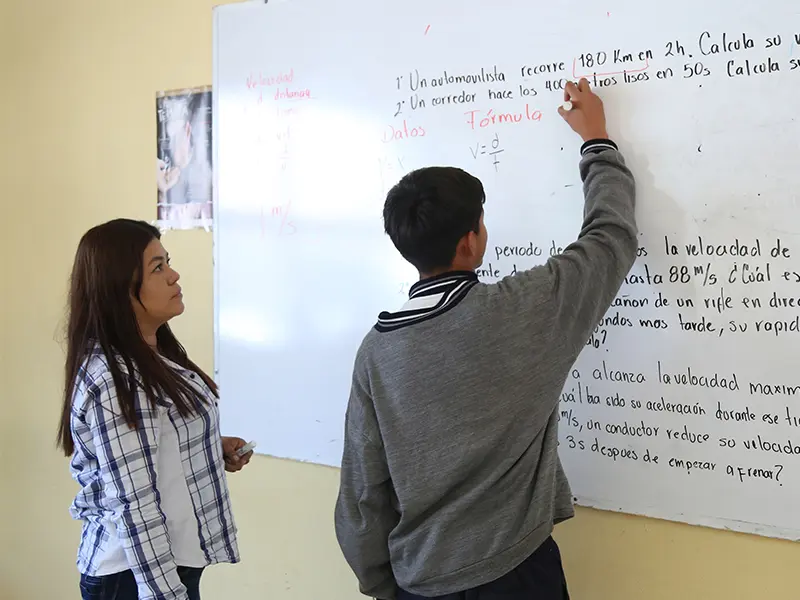 1º Un automovilista recorre 180 Km en 2h. Calcula su
2º Un corredor hace los 400 metros lisos en 50s Calcula su
Velocidad
distancia
Datos
Fórmula
V = d/t
m/s
periodo de la velocidad de
hasta 88 m/s ¿Cuál es
cañon de un rifle en direc
mas tarde, su rapid
alcanza la velocidad maxim
ha sido su aceleración durante ese ti
m/s, un conductor reduce su velocidad
3s despues de empezar a frenar?